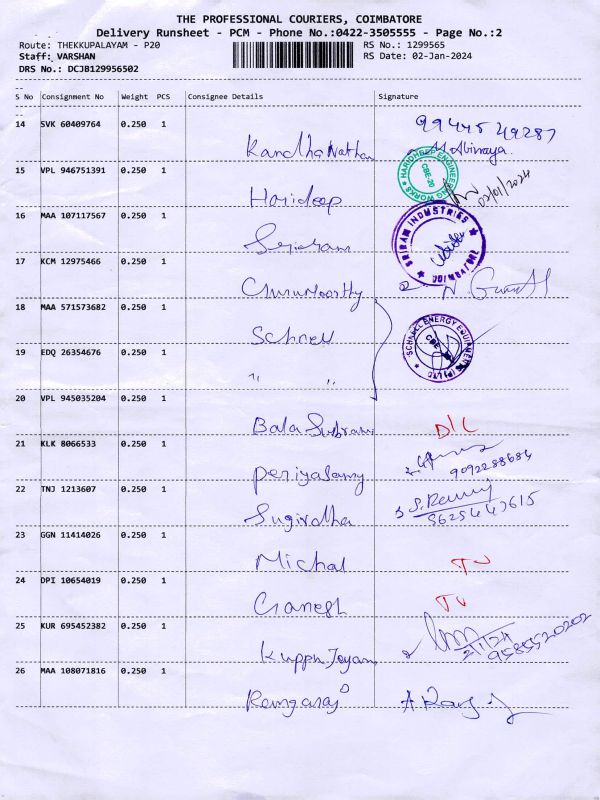 THE PROFESSIONAL COURIERS, COIMBATORE
Delivery Runsheet - PCM - Phone No.:0422-3505555 - Page No.:2
Route: THEKKUPALAYAM - P20 RS No.: 1299565
Staff: VARSHAN RS Date: 02-Jan-2024
DRS No.: DCJB129956502
S No Consignment No Weight PCS Consignee Details Signature
14 SVK 60409764 0.250 1
KandhaNathan 9944549287
M. Abinaya.
15 VPL 946751391 0.250 1
Harideep HARIDEEP ENGINEERING WORKS CBE-20 02/01/2024
16 MAA 107117567 0.250 1
Sriram SRIRAM INDUSTRIES COIMBATORE
17 KCM 12975466 0.250 1
Gurumoorthy
18 MAA 571573682 0.250 1
Schnell SCHNELL ENERGY EQUIPMENTS (P) LTD CBE
19 EDQ 26354676 0.250 1
" "
20 VPL 945035204 0.250 1
Bala Subram D/L
21 KLK 8066533 0.250 1
Periyasamy 9092288684
22 TNJ 1213607 0.250 1
Sugirdha S. Ramy
9625447615
23 GGN 11414026 0.250 1
Michal
24 DPI 10654019 0.250 1
Ganesh
25 KUR 695452382 0.250 1
Kuppu Joyam 2/1/24
9585520202
26 MAA 108071816 0.250 1
Rengaraj A. Raj